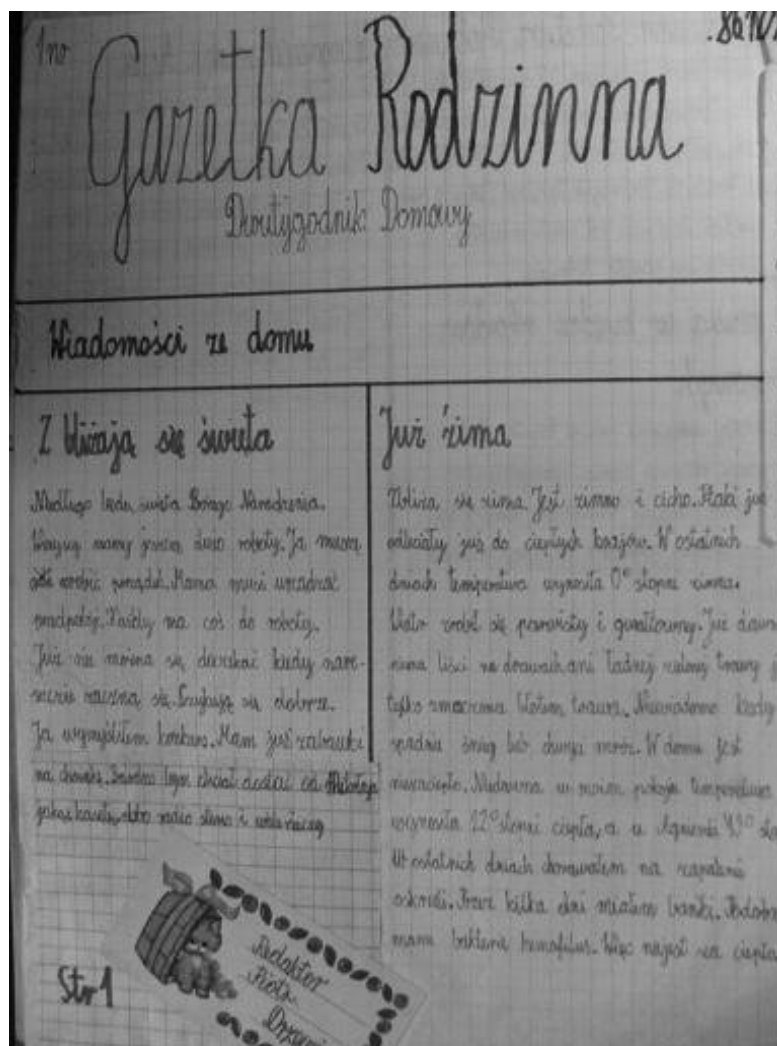 1 nr
Gazetka Rodzinna
Dwutygodnik Domowy
Wiadomości ze domu
Z bliżają się święta
Niedługo będą święta Bożego Narodzenia.
mamy jeszcze dużo roboty. Ja muszę
zrobić porządek. Mama musi urządzać
Każdy ma coś do roboty.
Już nie można się doczekać kiedy nare-
szcie zaczną się. Szykują się dobrze.
Ja wymyśliłem konkurs. Mam już zabawki
na choinkę. bym chciał dostać od Mikołaja
jakąś kasetę, albo radio stereo i
Str 1
Już zima
Zbliża się zima. Jest zimno i cicho. Ptaki już
odleciały już do ciepłych krajów. W ostatnich
dniach temperatura wynosiła 0° stopni zimna.
Wiatr zrobił się porwisty i gwałtowny. Już dawno
niema liści na drzewach ani ładnej zielonej trawy
tylko zmoczona błotem trawa. Niewiadomo kiedy
spadnie śnieg lub chwyci mróz. W domu jest
nieciepło. Niedawno w moim pokoju temperatura
wynosiła 12° stopni ciepła, a u Agnieszki
W ostatnich dniach chorowałem na zapalenie
oskrzeli. Przez kilka dni miałem bańki. Podobno
mam bakterię hemofilus. Więc
Redaktor
Piotr